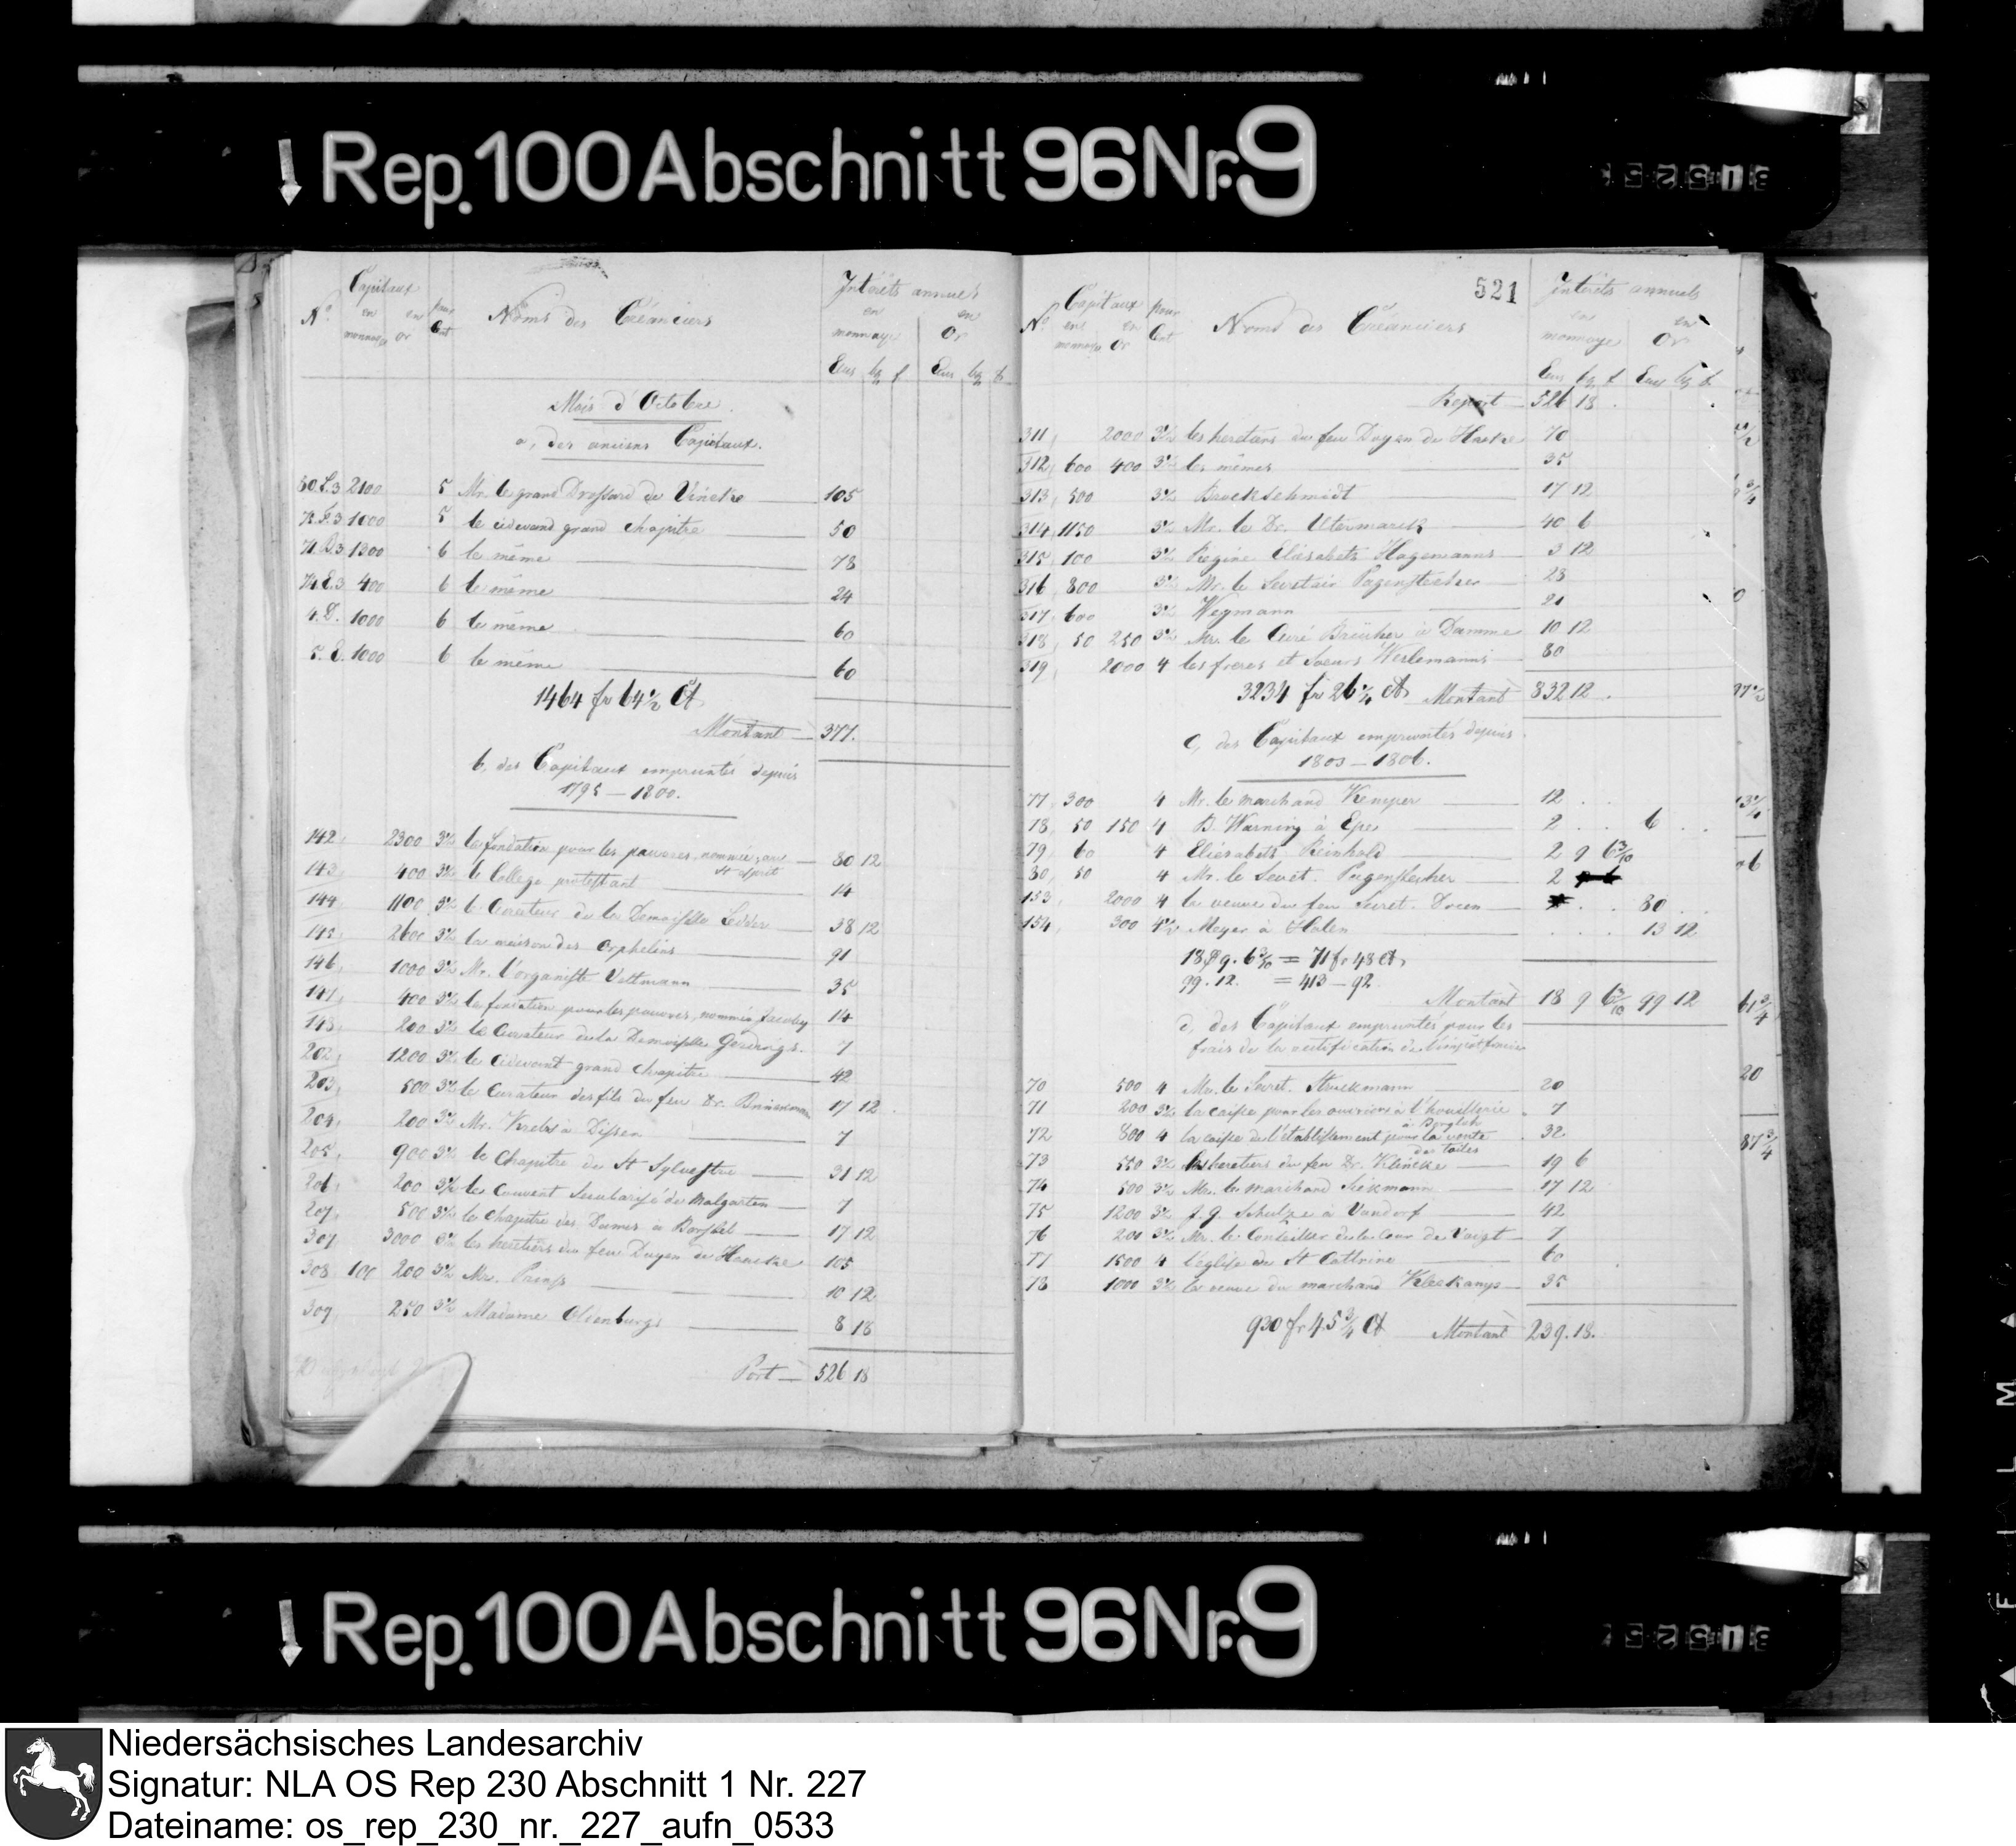 Rep. 100 Abschnitt 96 Nr. 9
Capitaux
Intérêts annuels
No. en monnaye en Or pour Cent Noms des Créanciers en monnaye en Or
Ecus bg f Ecus bg f
Mois d'Octobre.
a, des anciens Capitaux.
2100 5 Mr. le grand Drossard de Vincke 105
1000 5 le cidevand grand chapitre 50
1300 6 le même 78
400 6 le même 24
4. D. 1000 6 le même 60
5. E. 1000 6 le même 60
1464 fr 64½ Ct
Montant 377.
b, des Capitaux empruntés depuis
1795 – 1800.
142, 2300 3½ la fondation pour les pauvres, nommée, au St esprit 80 12
143, 400 3½ le College protestant 14
144, 1100 3½ le Curateur de la Demoiselle Ledder 38 12
145, 2600 3½ la maison des Orphelins 91
146, 1000 3½ Mr. l'organiste Veltmann 35
147, 400 3½ la fondation pour les pauvres, nommée Jacoby 14
148, 200 3½ le Curateur de la Demoiselle 7
202, 1200 3½ le cidevant grand chapitre 42
203, 500 3½ le Curateur des fils du feu Dr. 17 12
204, 200 3½ Mr. Krebs à Dissen 7
205, 900 3½ le Chapitre de St Sylvestre 31 12
206, 200 3½ le Couvent Secularisé de Malgarten 7
207, 500 3½ le chapitre des Dames à Börstel 17 12
307, 3000 3½ les heritiers du feu Doyen de Hacke 105
308, 100 200 3½ Mr. 10 12
309, 250 3½ Madame Oldenburg 8 18
Port 526 18
521
Capitaux
Intérêts annuels
No. en monnaye en Or pour Cent Noms des Créanciers en monnaye en Or
Ecus bg f Ecus bg f
Report 526 18
311, 2000 3½ les heretiers du feu Doyen de Hacke 70
312, 600 400 3½ les mêmes 35
313, 500 3½ Brockschmidt 17 12
314, 1150 3½ Mr. le Dr. Utermarck 40 6
315, 100 3½ Regine Elisabeth Hagemanns 3 12
316, 800 3½ Mr. le Secretair Pagenstecher 28
317, 600 3½ Weymann 21
318, 50 250 3½ Mr. le Curé à Damme 10 12
319, 2000 4 les freres et Soeurs 80
3234 fr 26¼ Ct Montant 832 12
c, des Capitaux empruntés depuis
1803 – 1806.
77, 300 4 Mr. le marchand Kemper 12
78, 50 150 4 B. Warning à Epe 2 6
79, 60 4 Eliesabeth Reinhold 2 9 6 3/10
80, 50 4 Mr. le Secret. Pagenstecher 2
153, 2000 4 la veuve du feu Secret. 80
154, 300 4½ Meyer à Halen 13 12
18 9. 6 3/10 = 71 fr 48 Ct
99. 12. = 413 – 92
Montant 18 9 6 3/10 99 12
d, des Capitaux empruntés pour les
frais de la rectification de l'impôt foncier
70 500 4 Mr. le Secret. Struckmann 20
71 200 3½ la caisse pour les ouvriers à l'houillerie à Borgloh 7
72 800 4 la caisse de l'etablissement pour la vente des toiles 32
73 550 3½ les heretiers du feu Dr. Klincke 19 6
74 500 3½ Mr. le marchand Siekmann 17 12
75 1200 3½ J. J. Schulze à 42
76 200 3½ Mr. le Conseiller de la Cour de Voigt 7
77 1500 4 l'eglise de St Cathrine 60
78 1000 3½ la veuve du marchand Kleekamp 35
930 fr 45¾ Ct Montant 239. 18.
Rep. 100 Abschnitt 96 Nr. 9
Niedersächsisches Landesarchiv
Signatur: NLA OS Rep 230 Abschnitt 1 Nr. 227
Dateiname: os_rep_230_nr._227_aufn_0533